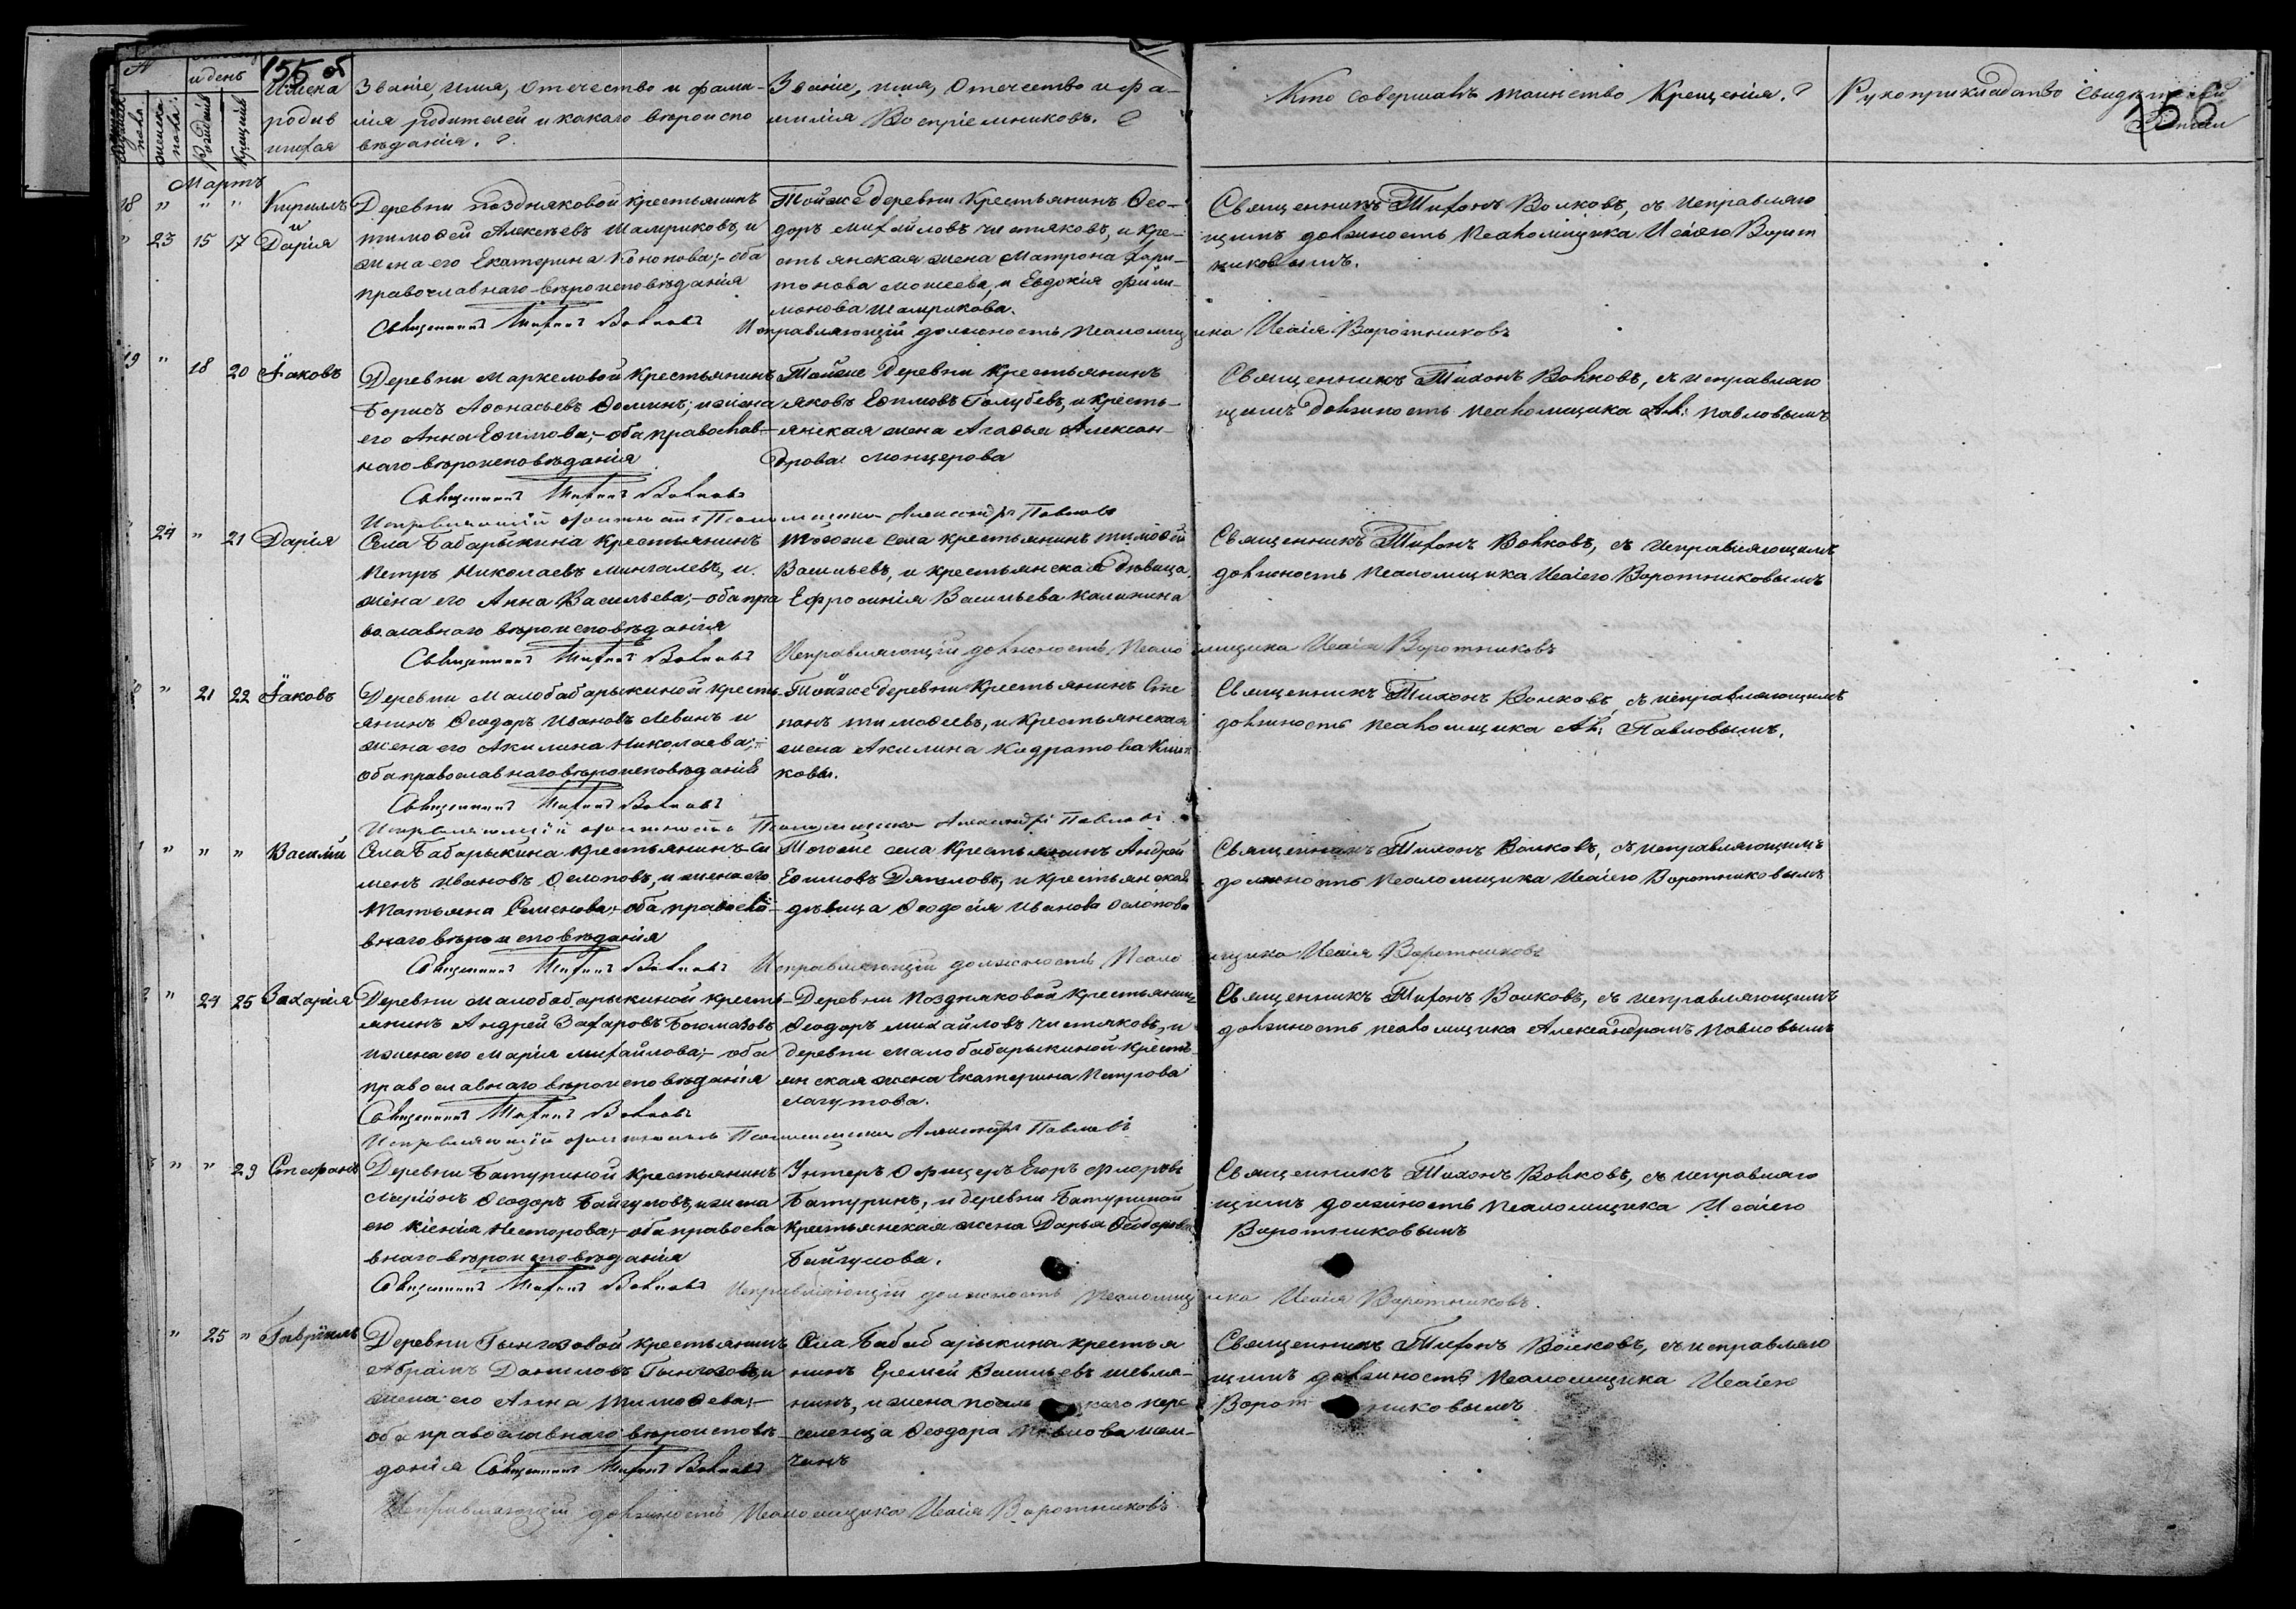 155 об
156
и день
Имена родившихся
Званіе, имя, отечество и фами-
лія родителей и какаго вѣроиспо
вѣданія. ?
Званіе, имя, отечество и фа-
милія Воспріемниковъ. ?
Кто совершалъ таинство Крещенія. ?
Рукоприкладство свидѣтелей
Мартъ
18 " " " Кириллъ
и
" 23 15 17 Дарія
Деревни Поздняковой крестьянинъ
Тимоѳей Алексѣевъ Шамриковъ, и
жена его Екатерина Конопова;- оба
православнаго вѣроисповѣданія
Тойже деревни Крестьянинъ Ѳео-
доръ Михайловъ Чистяковъ, и кре-
стьянская жена Матрона Хари-
тонова Моисеева, и Евдокія Фили-
монова Шамрикова.
Священникъ Тихонъ Волковъ, съ исправляю
щимъ должность псаломщика Исаіею Ворот
никовымъ.
Священникъ Тихонъ Волковъ
Исправляющій должность Псаломщика Исаія Воротниковъ
19 " 18 20 Іаковъ
Деревни Маркеловой Крестьянинъ
Борисъ Аѳонасьевъ Ѳоминъ; и жена
его Анна Еѳимова;- оба православ-
наго вѣроисповѣданія
Тойже деревни Крестьянинъ
Яковъ Еѳимовъ Голубевъ, и кресть-
янская жена Агаѳья Алексан-
дрова Монцерова
Священникъ Тихонъ Волковъ, съ исправляю
щимъ должность псаломщика Ал: Павловымъ
Священникъ Тихонъ Волковъ
Исправляющій должность Псаломщика Александръ Павловъ
" 24 " 21 Дарія
Села Бабарыкина Крестьянинъ
Петръ Николаевъ Мингалевъ, и
жена его Анна Васильева;- оба пра
вославнаго вѣроисповѣданія
Тогоже села крестьянинъ Тимоѳей
Васильевъ, и крестьянская дѣвица
Ефросинія Васильева Калинина
Священникъ Тихонъ Волковъ, съ исправляющимъ
должность псаломщика Исаіею Воротниковымъ
Священникъ Тихонъ Волковъ
Исправляющій должность Псаломщика Исаія Воротниковъ
" 21 22 Іаковъ
Деревни Малобабарыкиной кресть-
янинъ Ѳеодоръ Ивановъ Левинъ и
жена его Акилина Николаева;-
оба православнаго вѣроисповѣданія
Тойже деревни Крестьянинъ Сте
панъ Тимоѳеевъ, и крестьянская
жена Акилина Кодратова
кова.
Священникъ Тихонъ Волковъ, съ исправляющимъ
должность псаломщика Ал: Павловымъ.
Священникъ Тихонъ Волковъ
Исправляющій должность Псаломщика Александръ Павловъ
" " " Василій
Села Бабарыкина крестьянинъ Си
менъ Ивановъ Ослоповъ, и жена его
Татьяна Семенова;- оба правосла-
внаго вѣроисповѣданія
Тогоже села Крестьянинъ Андрей
Еѳимовъ Дятловъ, и крестьянская
дѣвица Ѳеодосія Иванова Ослопова
Священникъ Тихонъ Волковъ, съ исправляющимъ
должность псаломщика Исаіею Воротниковымъ
Священникъ Тихонъ Волковъ
Исправляющій должность Псаломщика Исаія Воротниковъ
" 24 25 Захарія
Деревни Малобабарыкиной кресть-
янинъ Андрей Захаровъ Богомазовъ
и жена его Марія Михайлова;- оба
православнаго вѣроисповѣданія
Деревни Поздняковой крестьянинъ
Ѳеодоръ Михайловъ Чистяковъ, и
деревни Малобабарыкиной кресть
янская жена Екатерина Петрова
Лагутова.
Священникъ Тихонъ Волковъ, съ исправляющимъ
должность псаломщика Александромъ Павловымъ
Священникъ Тихонъ Волковъ
Исправляющій должность Псаломщика Александръ Павловъ
" " 29 Стефанъ
Деревни Батуриной крестьянинъ
Ларіонъ Ѳеодоръ Байгуловъ, и жена
его Ксенія Несторова;- оба правосла
внаго вѣроисповѣданія
Унтеръ Офицеръ Егоръ Флоровъ
Батуринъ, и деревни Батуриной
крестьянская жена Дарья Ѳеодорова
Байгулова.
Священникъ Тихонъ Волковъ, съ исправляю
щимъ должность псаломщика Исаіею
Воротниковымъ
Священникъ Тихонъ Волковъ
Исправляющій должность Псаломщика Исаія Воротниковъ.
" 25 " Гавріилъ
Деревни Гынгазовой крестьянинъ
Абрамъ Даниловъ Гынгазовъ, и
жена его Анна Тимоѳева;-
оба православнаго вѣроисповѣ-
данія
Села Бабабарыкина крестья
нинъ Еремей Васильевъ Шевля-
нинъ, и жена пере
селенца Ѳеодора Павлова
Священникъ Тихонъ Волковъ, съ исправляю
щимъ должность псаломщика Исаіею
Воротниковымъ
Священникъ Тихонъ Волковъ
Исправляющій должность Псаломщика Исаія Воротниковъ